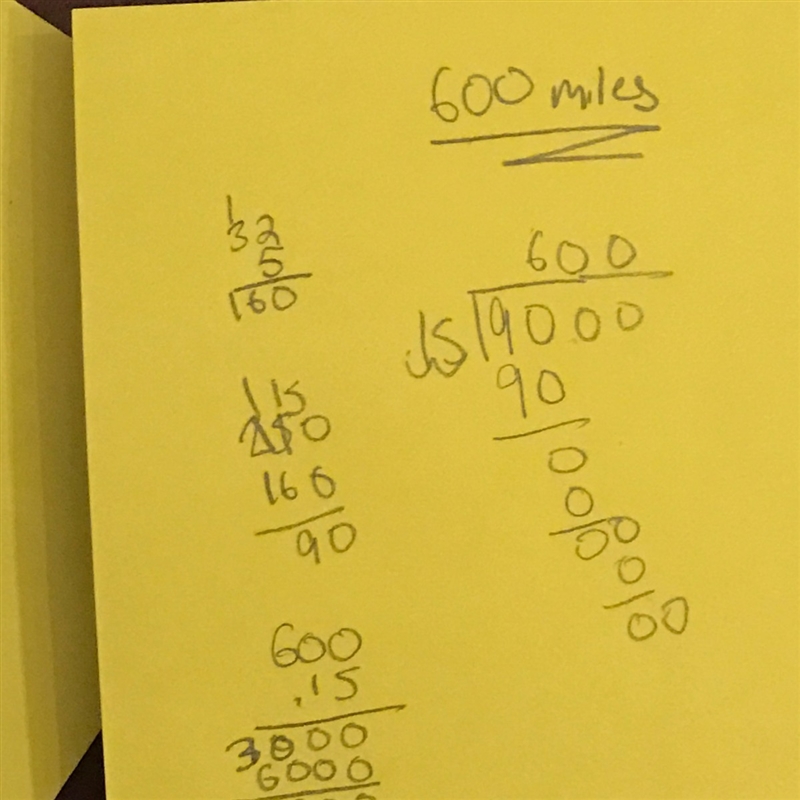 600 miles
1
32
5
160
1 15
250
160
90
600
.15
3000
6000
600
.15 9000
90
0
0
00
0
00